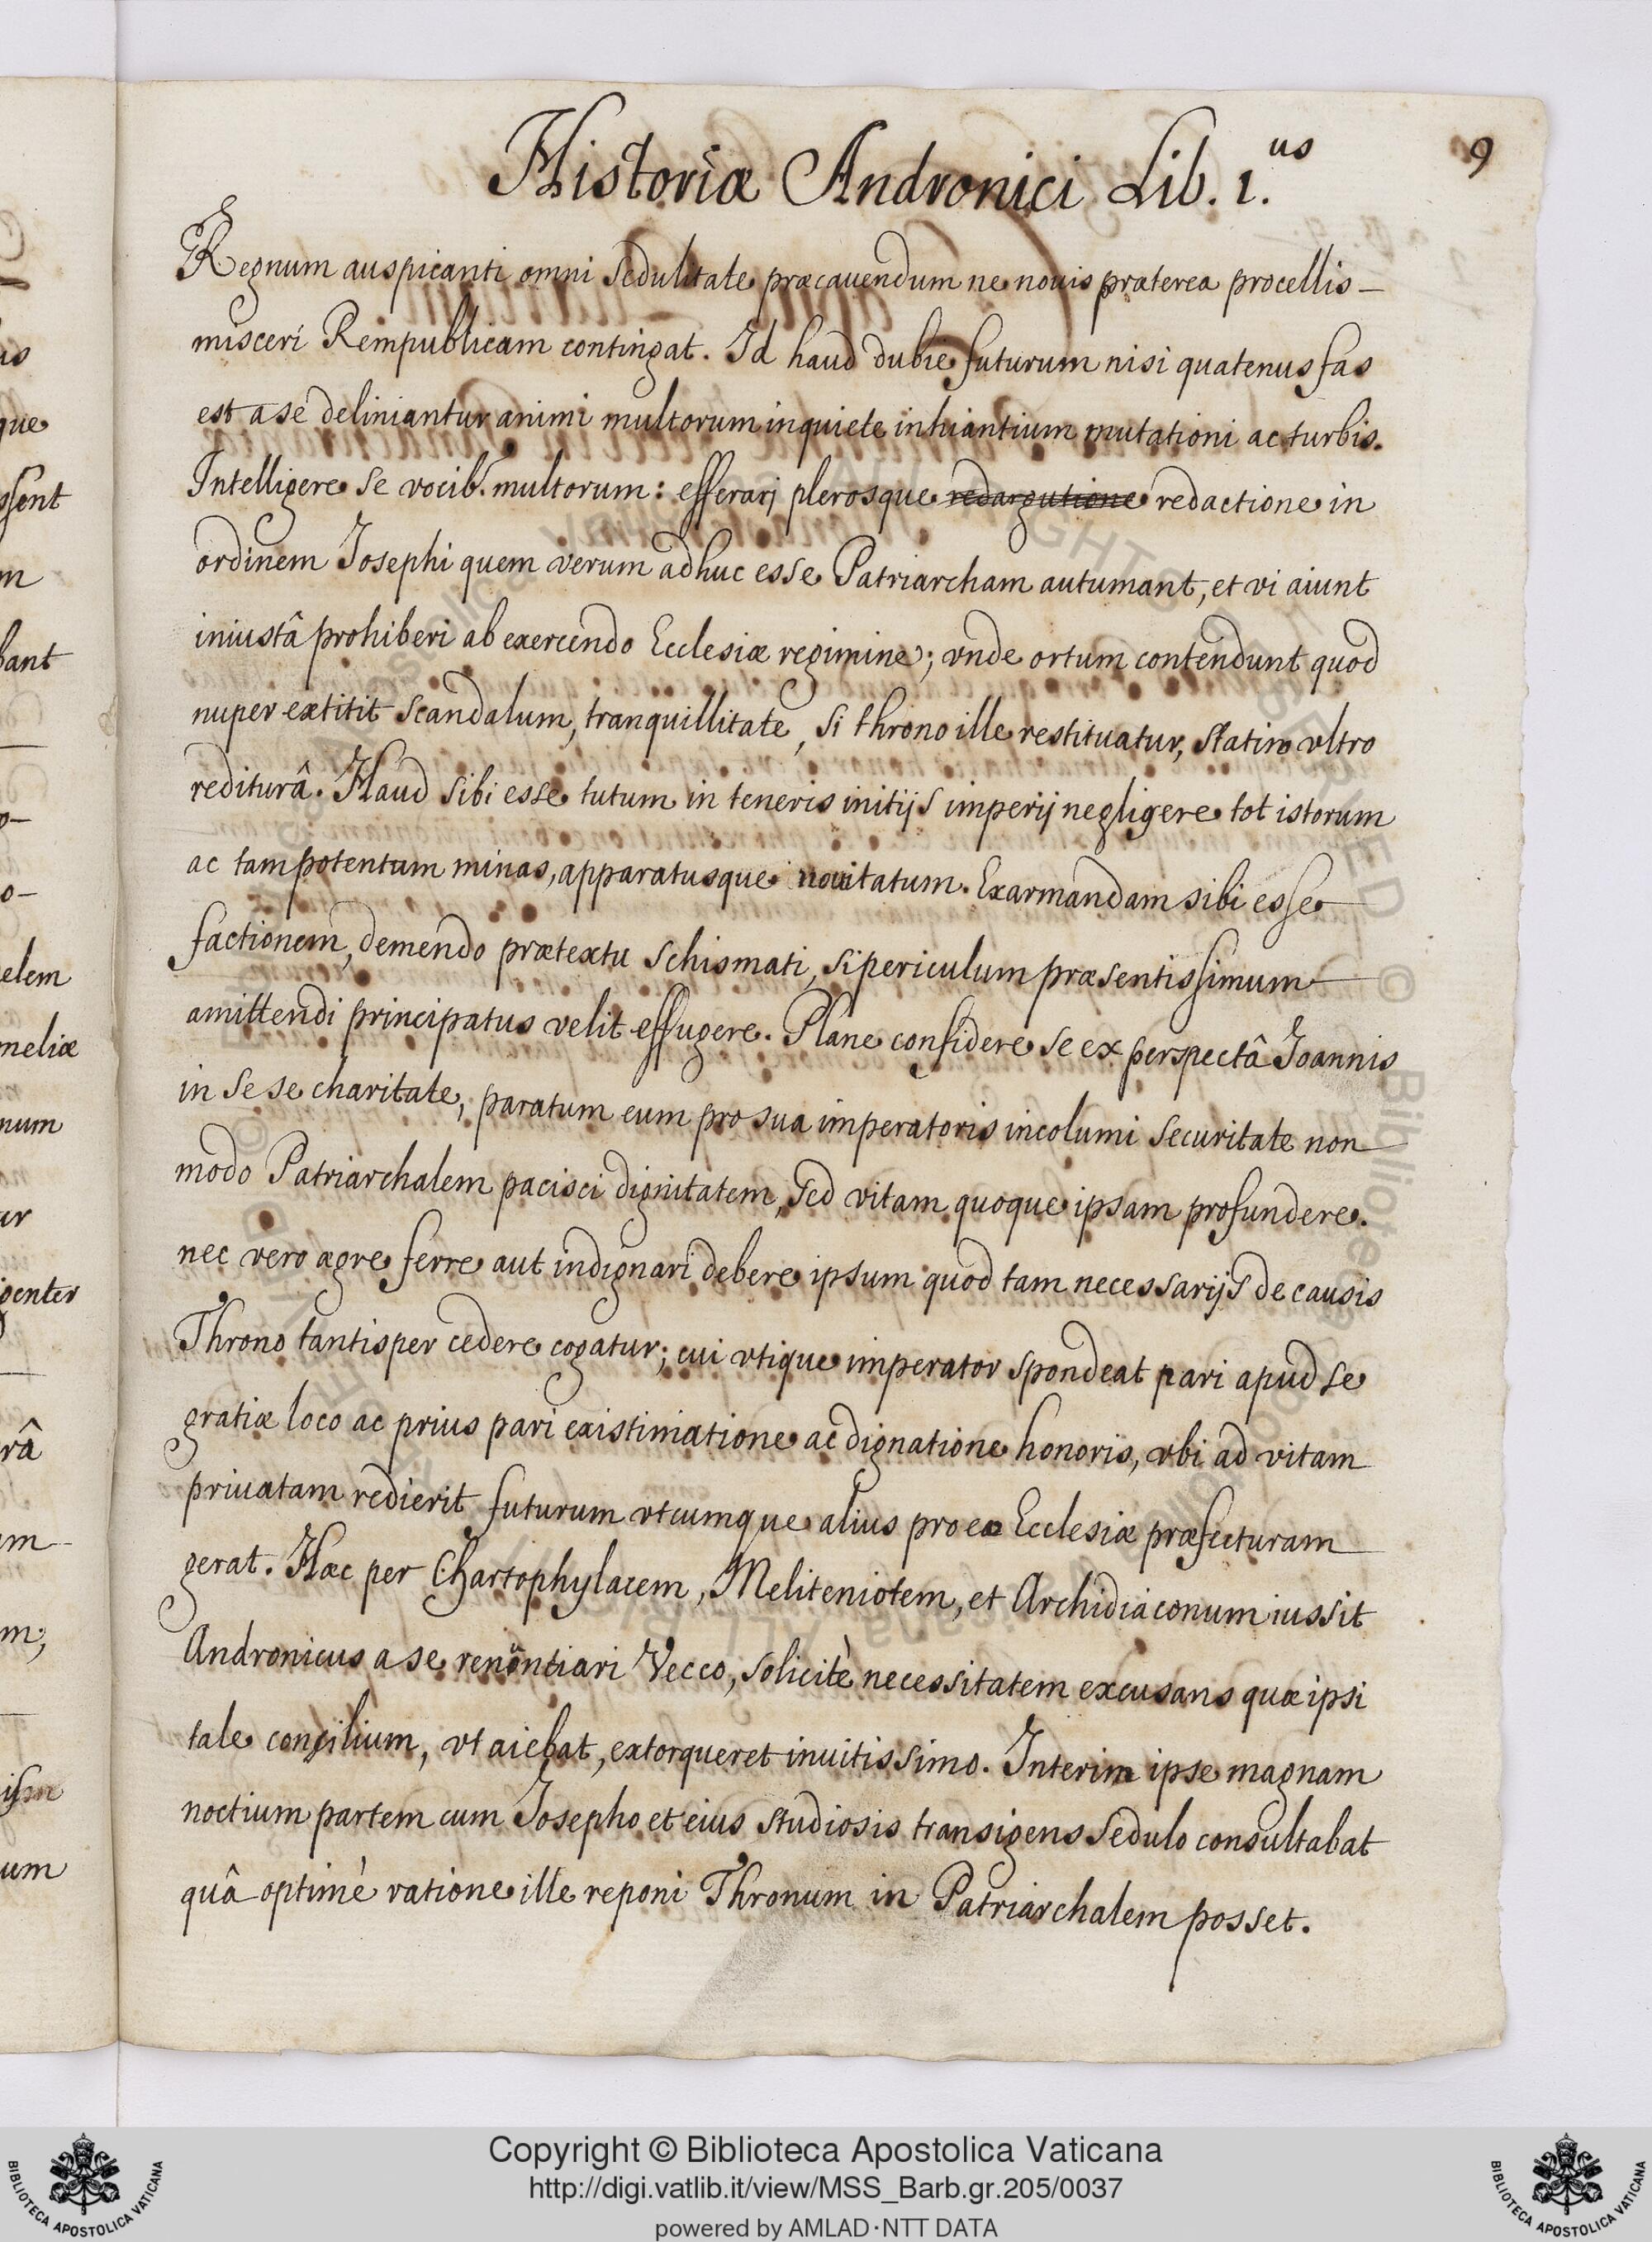 Historiæ Andronici Lib. 1.us
9
Regnum auspicanti omni sedulitate præcauendum ne nouis præterea procellis –
misceri Rempublicam contingat. Id haud dubie futurum nisi quatenus fas
est a se deliniantur animi multorum inquiete inhiantium mutationi ac turbis.
Intelligere se vocib. multorum: efferarj plerosque redargutione redactione in
ordinem Josephi quem verum adhuc esse Patriarcham autumant, et vi aiunt
iniustâ prohiberi ab exercendo Ecclesiæ regimine; vnde ortum contendunt quod
nuper extitit scandalum, tranquillitate, si throno ille restituatur, statim vltro
rediturâ. Haud sibi esse tutum in teneris initijs imperij negligere tot istorum
ac tam potentum minas, apparatusque nouitatum. Exarmandam sibi esse
factionem, demendo prætextu schismati, si periculum præsentissimum
amittendi principatus velit effugere. Plane confidere se ex perspectâ Joannis
in se se charitate, paratum eum pro sua imperatoris incolumi securitate non
modo Patriarchalem pacisci dignitatem, sed vitam quoque ipsam profundere.
nec vero ægre ferre aut indignari debere ipsum quod tam necessarijs de causis
Throno tantisper cedere cogatur; cui vtique imperator spondeat pari apud se
gratiæ loco ac prius pari existimatione ac dignatione honoris, vbi ad vitam
priuatam redierit futurum vtcumque alius pro eo Ecclesiæ præfecturam
gerat. Hæc per Chartophylacem, Meliteniotem, et Archidiaconum iussit
Andronicus a se renuntiari Vecco, solicitè necessitatem excusans quæ ipsi
tale consilium, vt aiebat, extorqueret inuitissimo. Interim ipse magnam
noctium partem cum Josepho et eius studiosis transigens sedulo consultabat
quâ optimè ratione ille reponi Thronum in Patriarchalem posset.
Copyright © Biblioteca Apostolica Vaticana
http://digi.vatlib.it/view/MSS_Barb.gr.205/0037
powered by AMLAD·NTT DATA
BIBLIOTECA APOSTOLICA VATICANA
BIBLIOTECA APOSTOLICA VATICANA